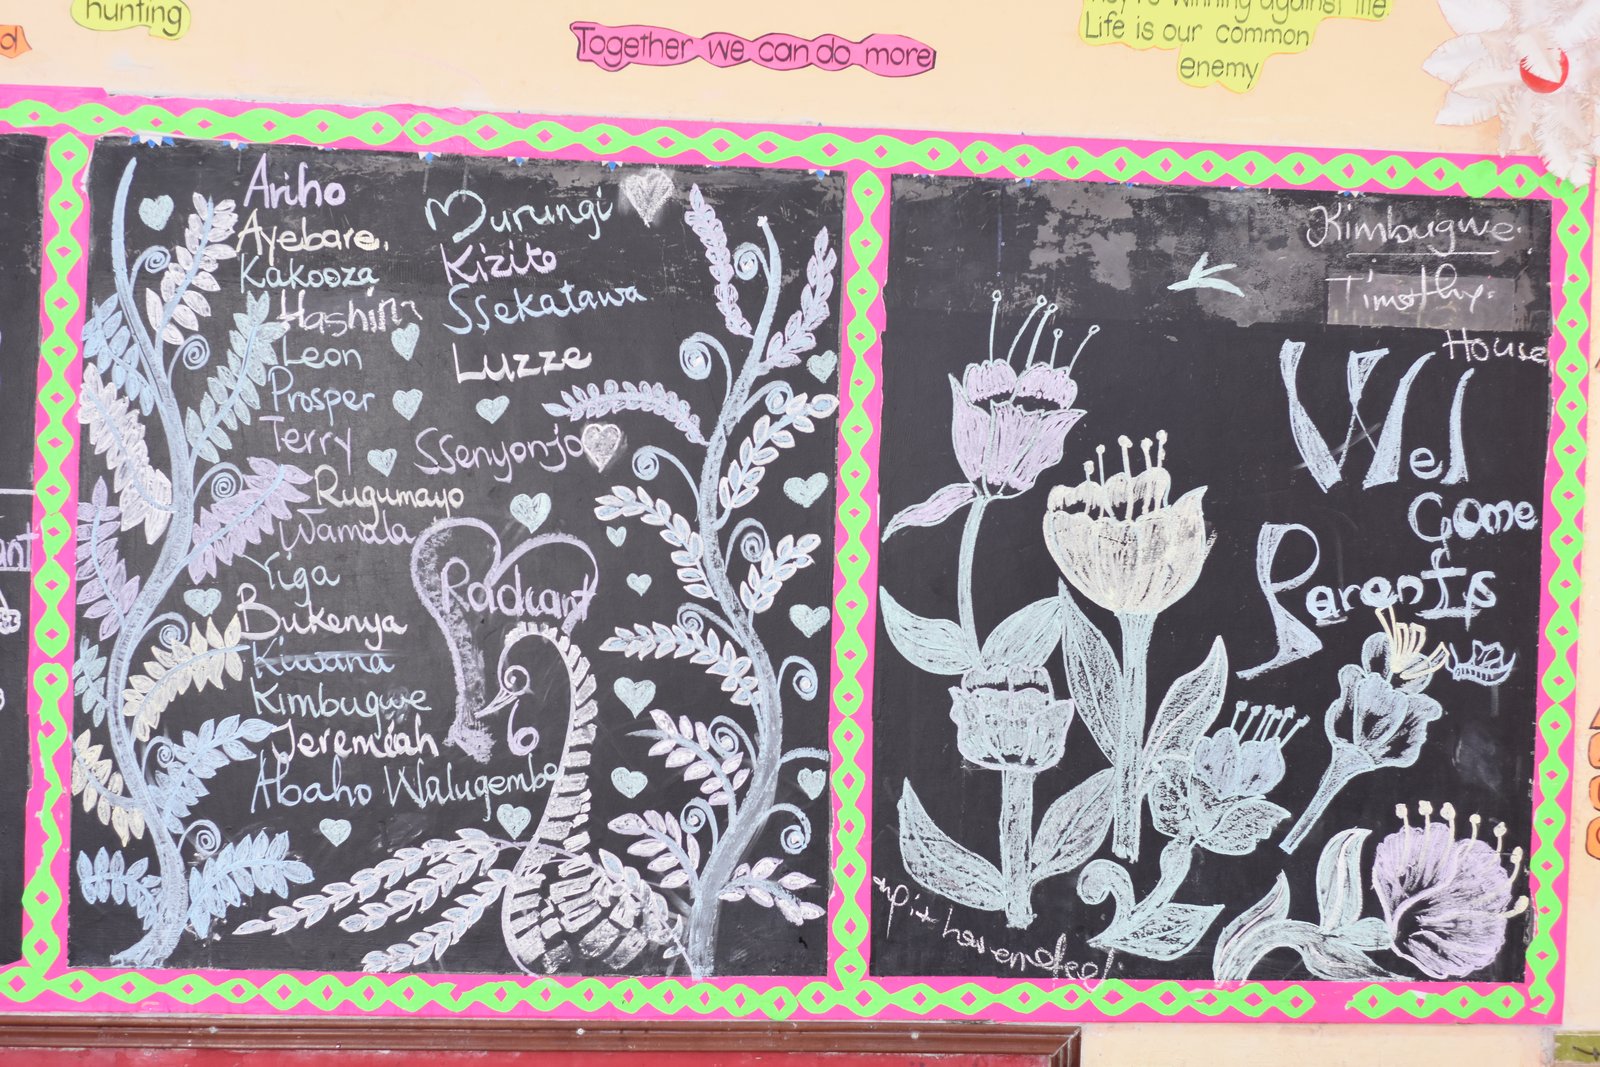 hunting
Together we can do more
Life is our common
enemy
Ariho
Ayebare.
Kakooza
Hashim
Leon
Prosper
Terry
Rugumayo
Wamala
Yiga
Bukenya
Kiwana
Kimbugwe
Jeremiah
Abaho Walugembe
Murungi
Kizito
Ssekatawa
Luzze
Ssenyonjo
Radiant
Kimbugwe.
Timothy.
House
Wel
Come
Parents